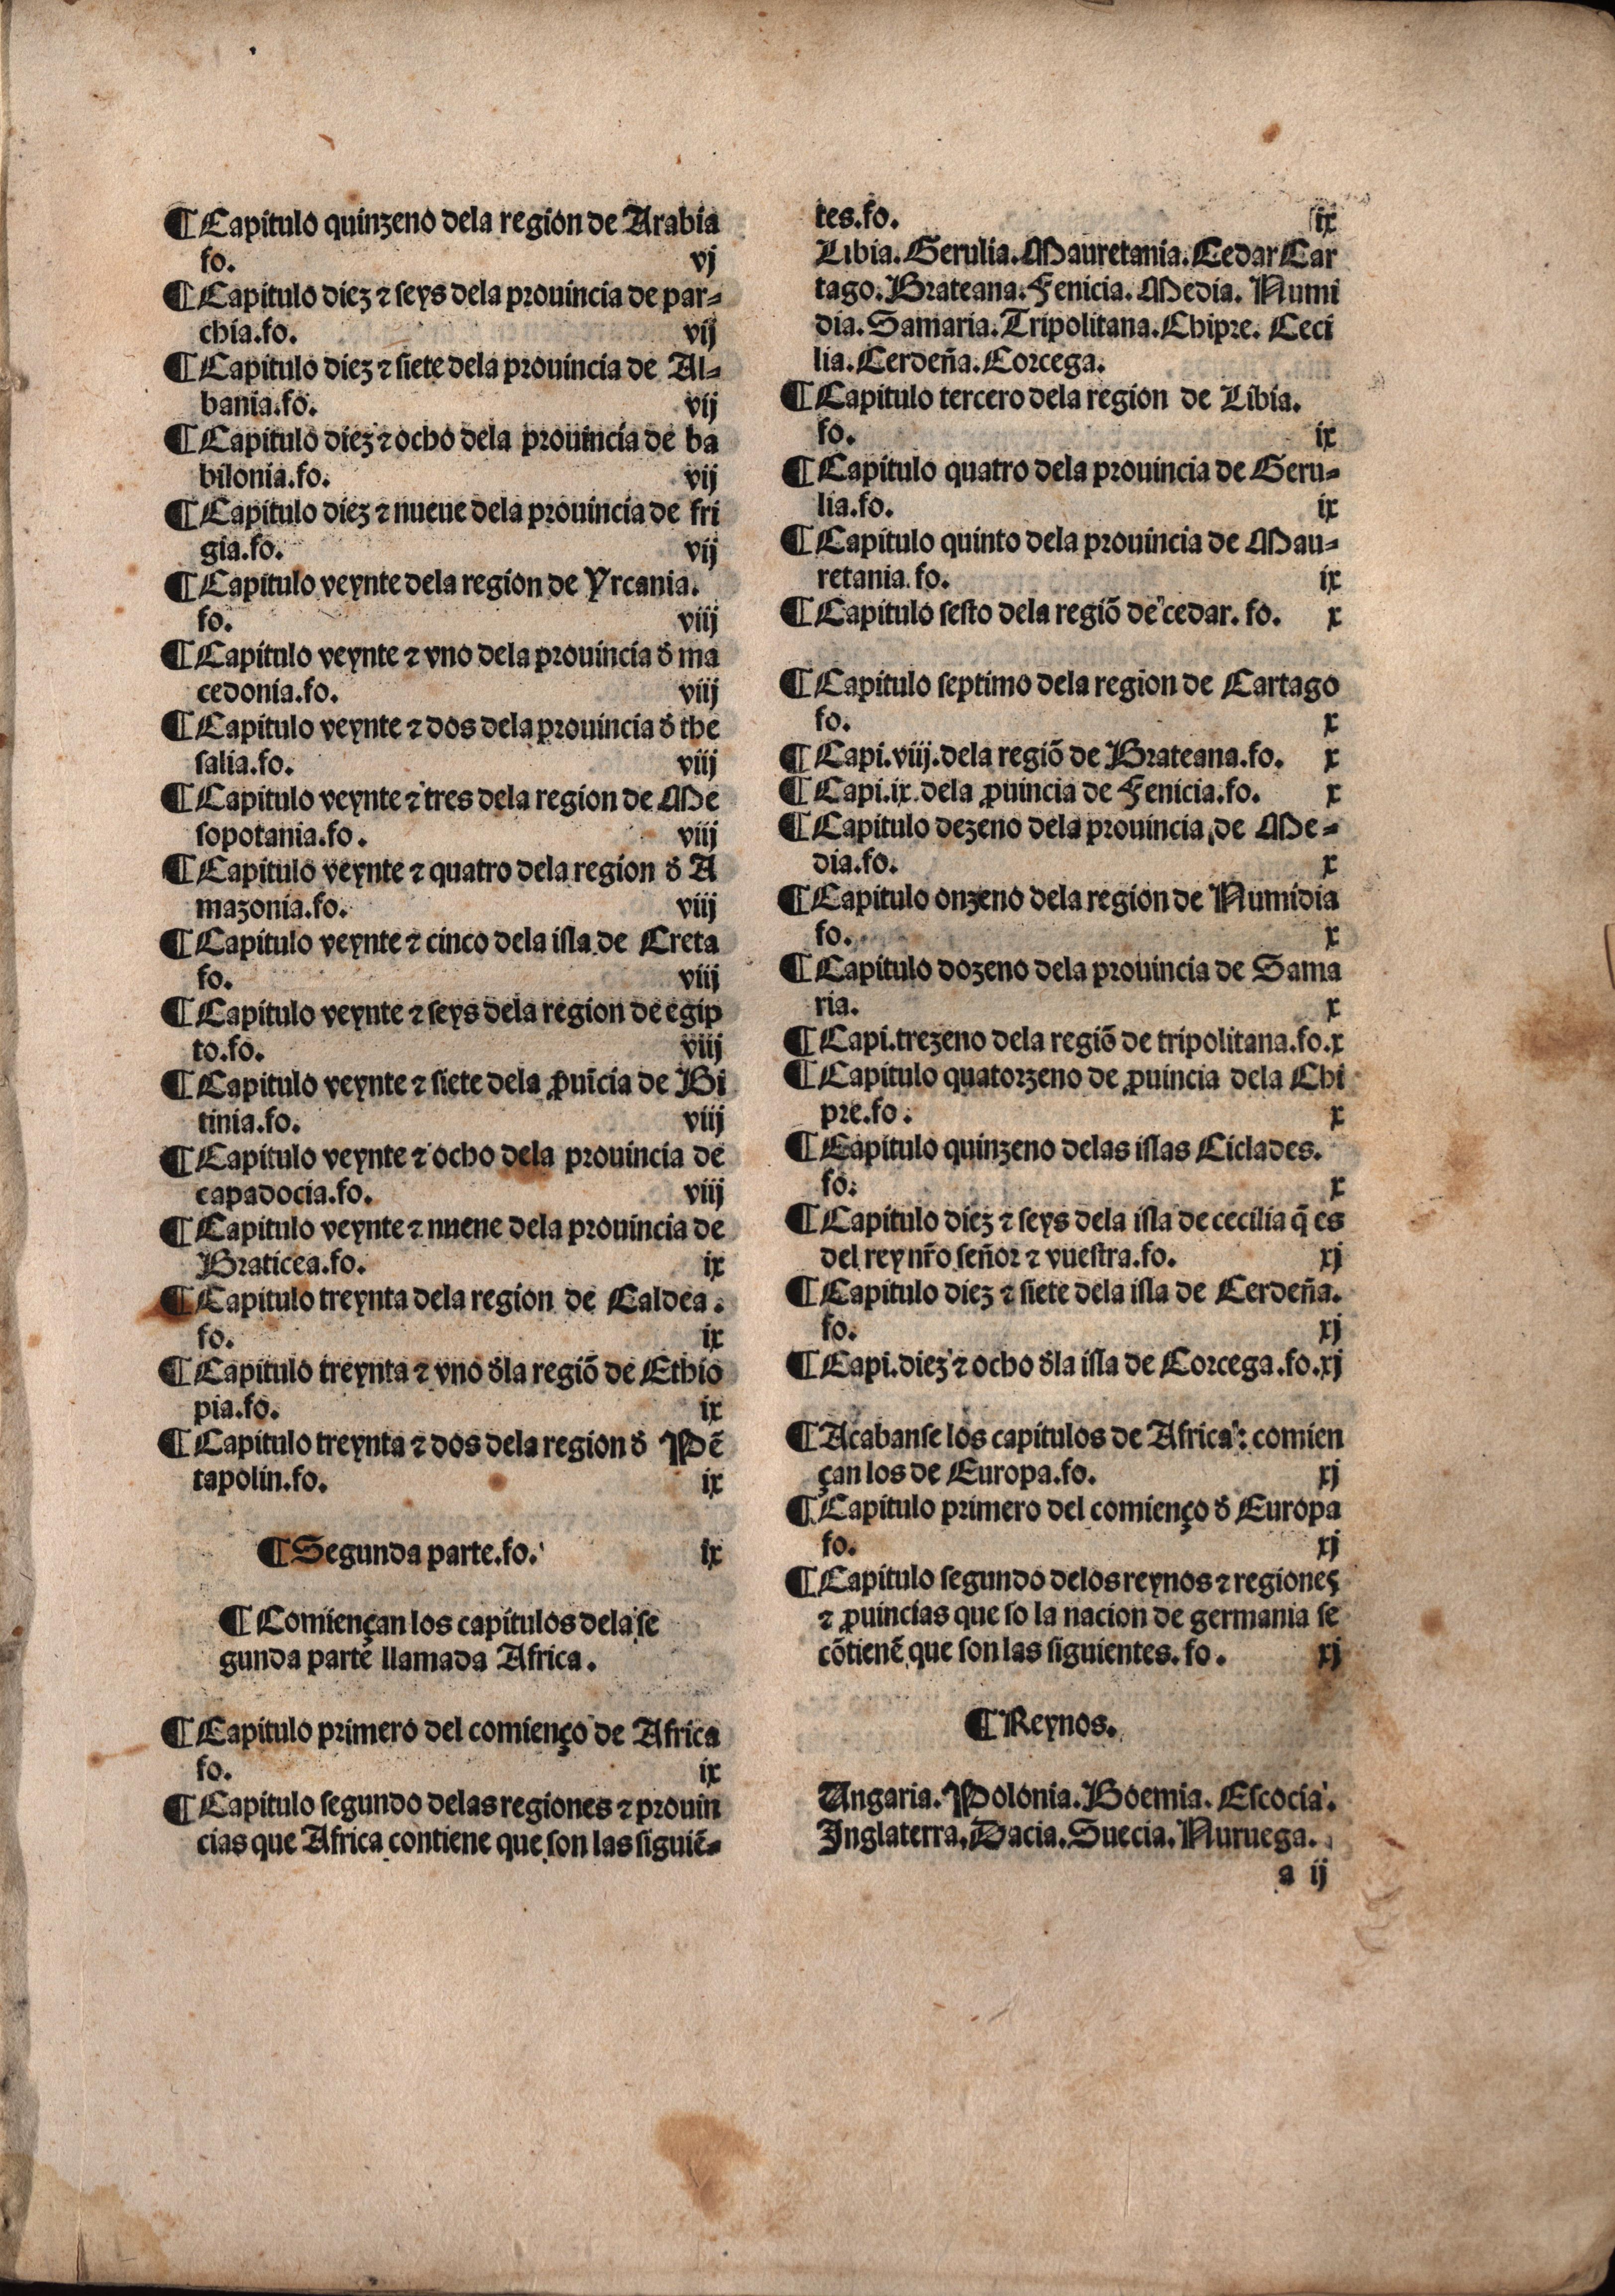 ¶Capitulo quinzeno dela region de Arabia
fo. vj
¶Capitulo diez ⁊ seys dela prouincia de par-
chia.fo. vij
¶Capitulo diez ⁊ siete dela prouincia de Al-
bania.fo. vij
¶Capitulo diez ⁊ ocho dela prouincia de ba
bilonia.fo. vij
¶Capitulo diez ⁊ nueue dela prouincia de fri
gia.fo. vij
¶Capitulo veynte dela region de Yrcania.
fo. viij
¶Capitulo veynte ⁊ vno dela prouincia đ ma
cedonia.fo. viij
¶Capitulo veynte ⁊ dos dela prouincia đ the
salia.fo. viij
¶Capitulo veynte ⁊ tres dela region de Me
sopotania.fo. viij
¶Capitulo veynte ⁊ quatro dela region đ A
mazonia.fo. viij
¶Capitulo veynte ⁊ cinco dela isla de Creta
fo. viij
¶Capitulo veynte ⁊ seys dela region de egip
to.fo. viij
¶Capitulo veynte ⁊ siete dela ꝓuĩcia de Bi
tinia.fo. viij
¶Capitulo veynte ⁊ ocho dela prouincia de
capadocia.fo. viij
¶Capitulo veynte ⁊ nuene dela prouincia de
Braticea.fo. ix
¶Capitulo treynta dela region de Caldea.
fo. ix
¶Capitulo treynta ⁊ vno đla regiõ de Ethio
pia.fo. ix
¶Capitulo treynta ⁊ dos dela region đ Pẽ
tapolin.fo. ix
¶Segunda parte.fo. ix
¶Comiençan los capitulos dela se
gunda parte llamada Africa.
¶Capitulo primero del comienço de Africa
fo. ix
¶Capitulo segundo delas regiones ⁊ prouin
cias que Africa contiene que son las siguiẽ-
tes.fo. ix
Libia.Gerulia.Mauretania.Cedar Car
tago.Brateana.Fenicia.Media. Numi
dia.Samaria.Tripolitana.Chipre. Ceci
lia.Cerdeña.Corcega.
¶Capitulo tercero dela region de Libia.
fo. ix
¶Capitulo quatro dela prouincia de Geru-
lia.fo. ix
¶Capitulo quinto dela prouincia de Mau-
retania.fo. ix
¶Capitulo sesto dela regiõ de cedar. fo. x
¶Capitulo septimo dela region de Cartago
fo. x
¶Capi.viij.dela regiõ de Brateana.fo. x
¶Capi.ix.dela ꝓuincia de Fenicia.fo. x
¶Capitulo dezeno dela prouincia de Me-
dia.fo. x
¶Capitulo onzeno dela region de Numidia
fo. x
¶Capitulo dozeno dela prouincia de Sama
ria. x
¶Capi.trezeno dela regiõ de tripolitana.fo.x
¶Capitulo quatorzeno de ꝓuincia dela Chi
pre.fo. x
¶Capitulo quinzeno delas islas Ciclades.
fo. x
¶Capitulo diez ⁊ seys dela isla de cecilia q̃ es
del rey nr̃o señor ⁊ vuestra.fo. xj
¶Capitulo diez ⁊ siete dela isla de Cerdeña.
fo. xj
¶Capi.diez ⁊ ocho đla isla de Corcega.fo.xj
¶Acabanse los capitulos de Africa: comien
çan los de Europa.fo. xj
¶Capitulo primero del comienço đ Europa
fo. xj
¶Capitulo segundo delos reynos ⁊ regiones
⁊ ꝓuincias que so la nacion de germania se
cõtienẽ que son las siguientes.fo. xj
¶Reynos.
Ungaria.Polonia.Boemia. Escocia.
Inglaterra.Dacia.Suecia.Nuruega.
a ij